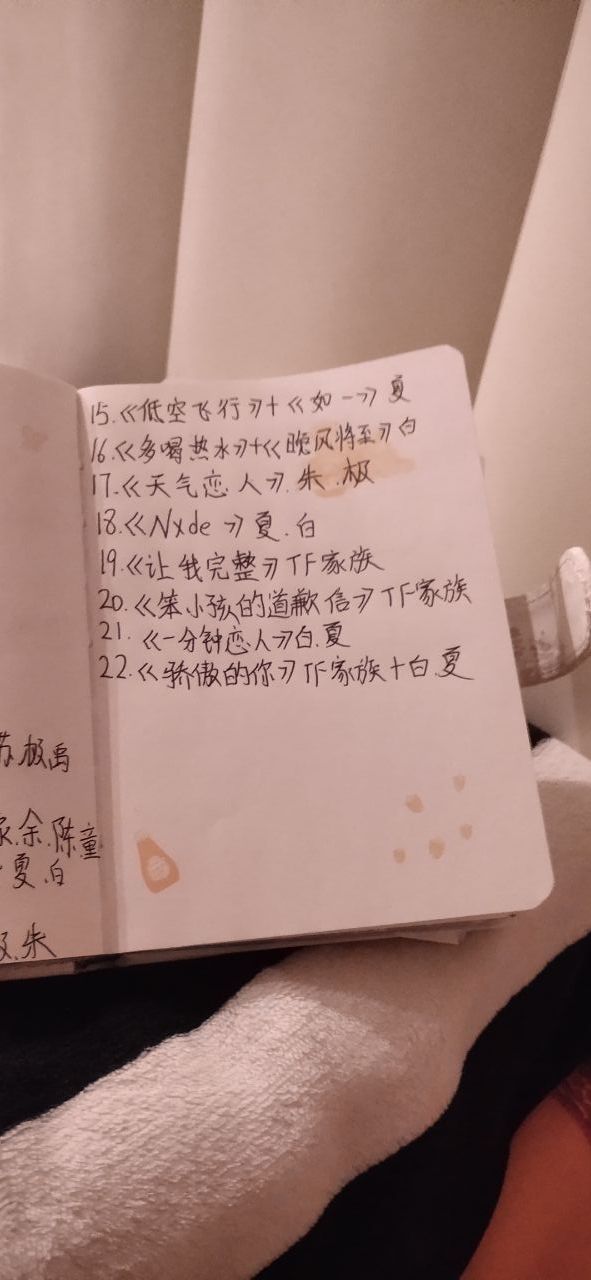 15.《低空飞行》+《如一》夏
16.《多喝热水》+《晚风将至》白
17.《天气恋人》.朱.极
18.《Nxde》夏.白
19.《让我完整》TF家族
20.《笨小孩的道歉信》TF家族
21.《一分钟恋人》白.夏
22.《骄傲的你》TF家族+白.夏
苏.极禹
余.陈.童
夏.白
极.朱